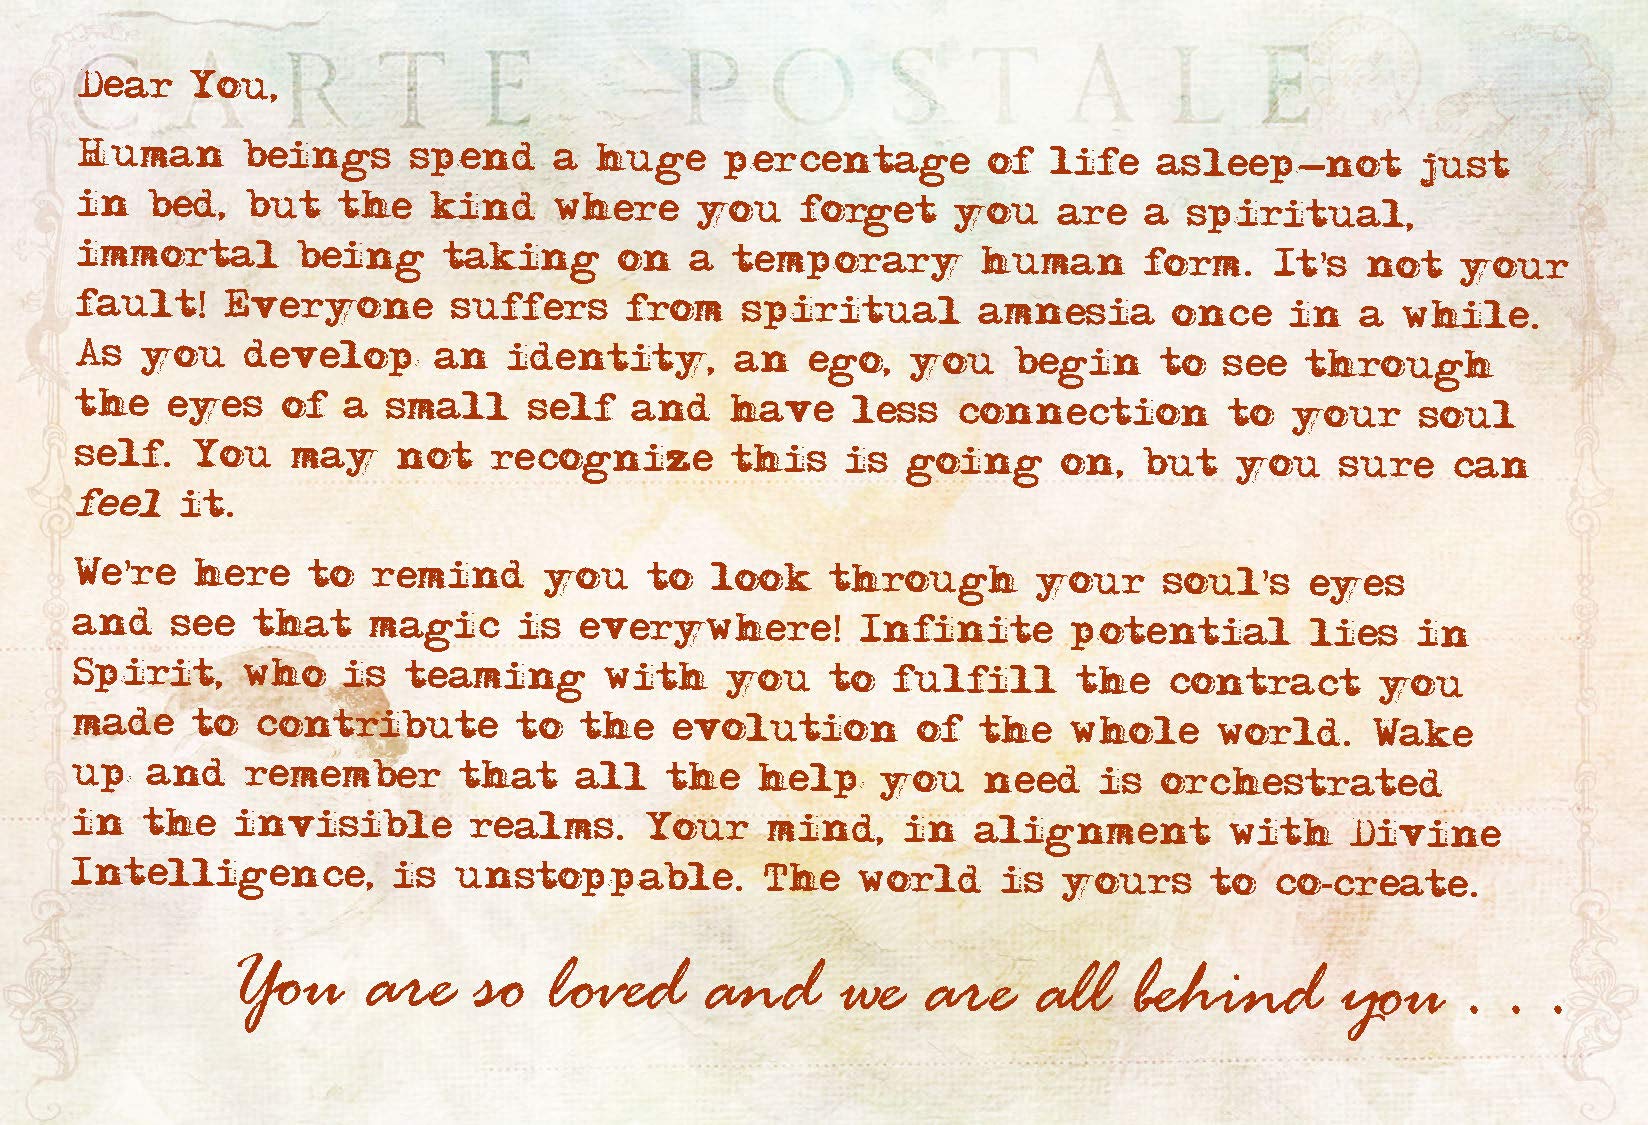 CARTE POSTALE
Dear You,
Human beings spend a huge percentage of life asleep—not just
in bed, but the kind where you forget you are a spiritual,
immortal being taking on a temporary human form. It's not your
fault! Everyone suffers from spiritual amnesia once in a while.
As you develop an identity, an ego, you begin to see through
the eyes of a small self and have less connection to your soul
self. You may not recognize this is going on, but you sure can
feel it.
We're here to remind you to look through your soul's eyes
and see that magic is everywhere! Infinite potential lies in
Spirit, who is teaming with you to fulfill the contract you
made to contribute to the evolution of the whole world. Wake
up and remember that all the help you need is orchestrated
in the invisible realms. Your mind, in alignment with Divine
Intelligence, is unstoppable. The world is yours to co-create.
You are so loved and we are all behind you . . .